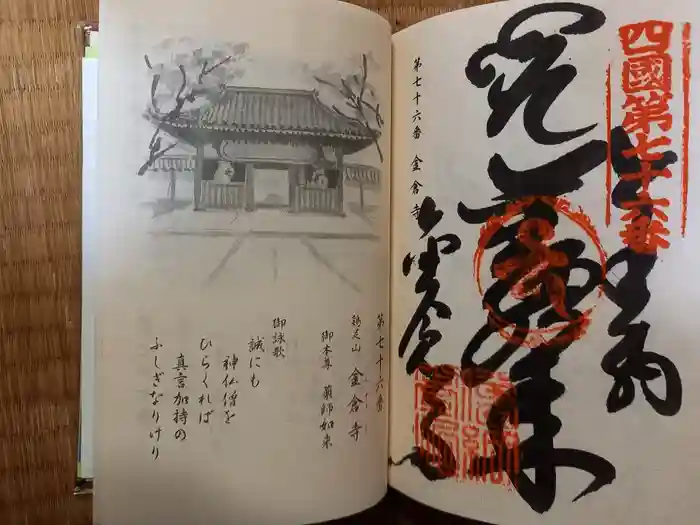 四國第七十六番
奉納
薬師如来
第七十六番 金倉寺
金倉寺
第七十六番
鶏足山 金倉寺
御本尊 薬師如来
御詠歌
誠にも
神仏僧を
ひらくれば
真言加持の
ふしぎなりけり